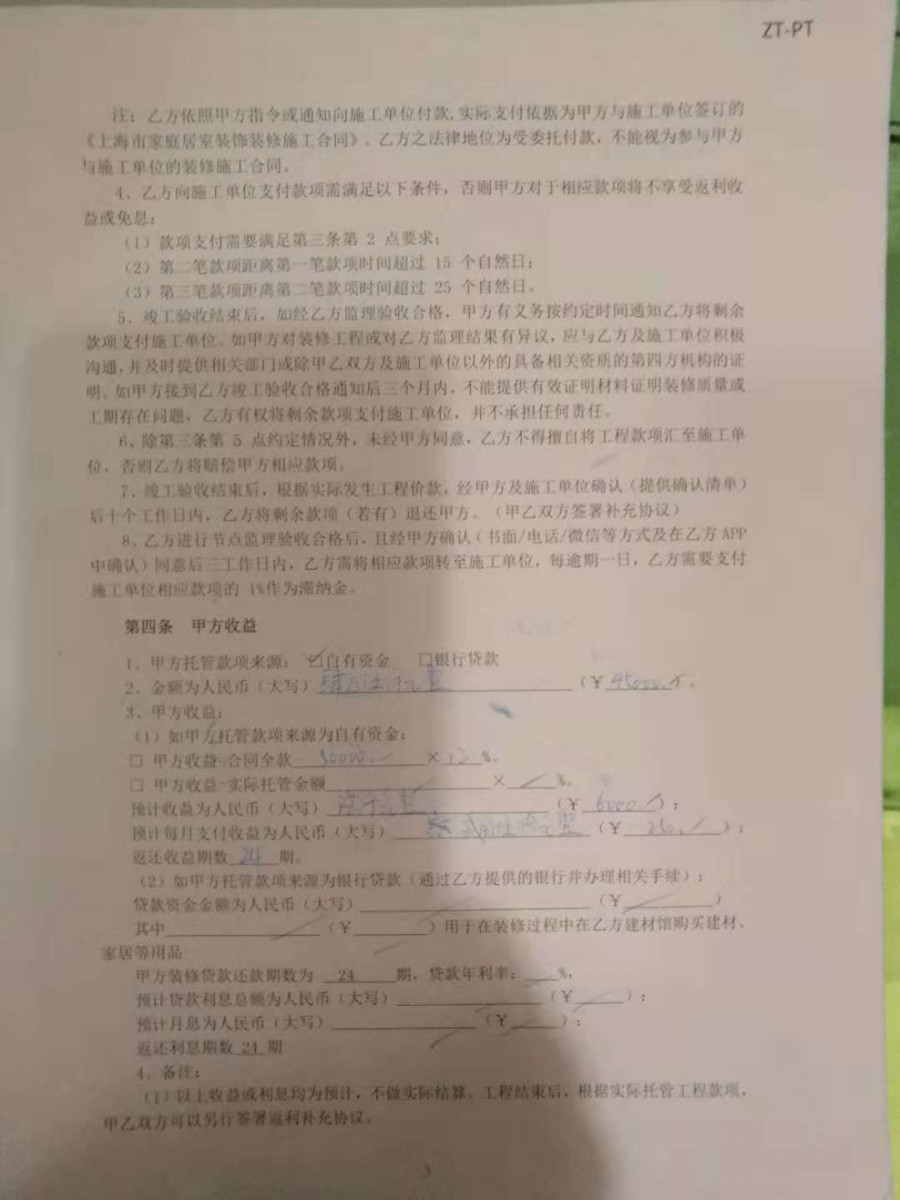 ZT-PT
注：乙方依照甲方指令或通知向施工单位付款,实际支付依据为甲方与施工单位签订的
《上海市家庭居室装饰装修施工合同》。乙方之法律地位为受委托付款，不能视为参与甲方
与施工单位的装修施工合同。
4、乙方向施工单位支付款项需满足以下条件，否则甲方对于相应款项将不享受返利收
益或免息：
（1）款项支付需要满足第三条第 2 点要求；
（2）第二笔款项距离第一笔款项时间超过 15 个自然日；
（3）第三笔款项距离第二笔款项时间超过 25 个自然日。
5、竣工验收结束后，如经乙方监理验收合格，甲方有义务按约定时间通知乙方将剩余
款项支付施工单位。如甲方对装修工程或对乙方监理结果有异议，应与乙方及施工单位积极
沟通,并及时提供相关部门或除甲乙双方及施工单位以外的具备相关资质的第四方机构的证
明。如甲方接到乙方竣工验收合格通知后三个月内，不能提供有效证明材料证明装修质量或
工期存在问题，乙方有权将剩余款项支付施工单位，并不承担任何责任。
6、除第三条第 5 点约定情况外，未经甲方同意，乙方不得擅自将工程款项汇至施工单
位，否则乙方将赔偿甲方相应款项。
7、竣工验收结束后，根据实际发生工程价款，经甲方及施工单位确认（提供确认清单）
后十个工作日内，乙方将剩余款项（若有）退还甲方。（甲乙双方签署补充协议）
8、乙方进行节点监理验收合格后，且经甲方确认（书面/电话/微信等方式及在乙方 APP
中确认）同意后三工作日内，乙方需将相应款项转至施工单位，每逾期一日，乙方需要支付
施工单位相应款项的 1%作为滞纳金。
第四条 甲方收益
1、甲方托管款项来源：☑自有资金 □银行贷款
2、金额为人民币（大写）（￥45000
3、甲方收益：
（1）如甲方托管款项来源为自有资金：
□ 甲方收益=合同全款 50000 × 12 %。
□ 甲方收益=实际托管金额 × %。
预计收益为人民币（大写）陆仟元整（￥6000）；
预计每月支付收益为人民币（大写）（￥）；
返还收益期数 24 期。
（2）如甲方托管款项来源为银行贷款（通过乙方提供的银行并办理相关手续）：
贷款资金金额为人民币（大写）（￥）
其中（￥）用于在装修过程中在乙方建材馆购买建材、
家居等用品
甲方装修贷款还款期数为 24 期，贷款年利率： %，
预计贷款利息总额为人民币（大写）（￥）；
预计月息为人民币（大写）（￥）；
返还利息期数 24 期
4、备注：
（1）以上收益或利息均为预计，不做实际结算。工程结束后，根据实际托管工程款项，
甲乙双方可以另行签署返利补充协议。
3